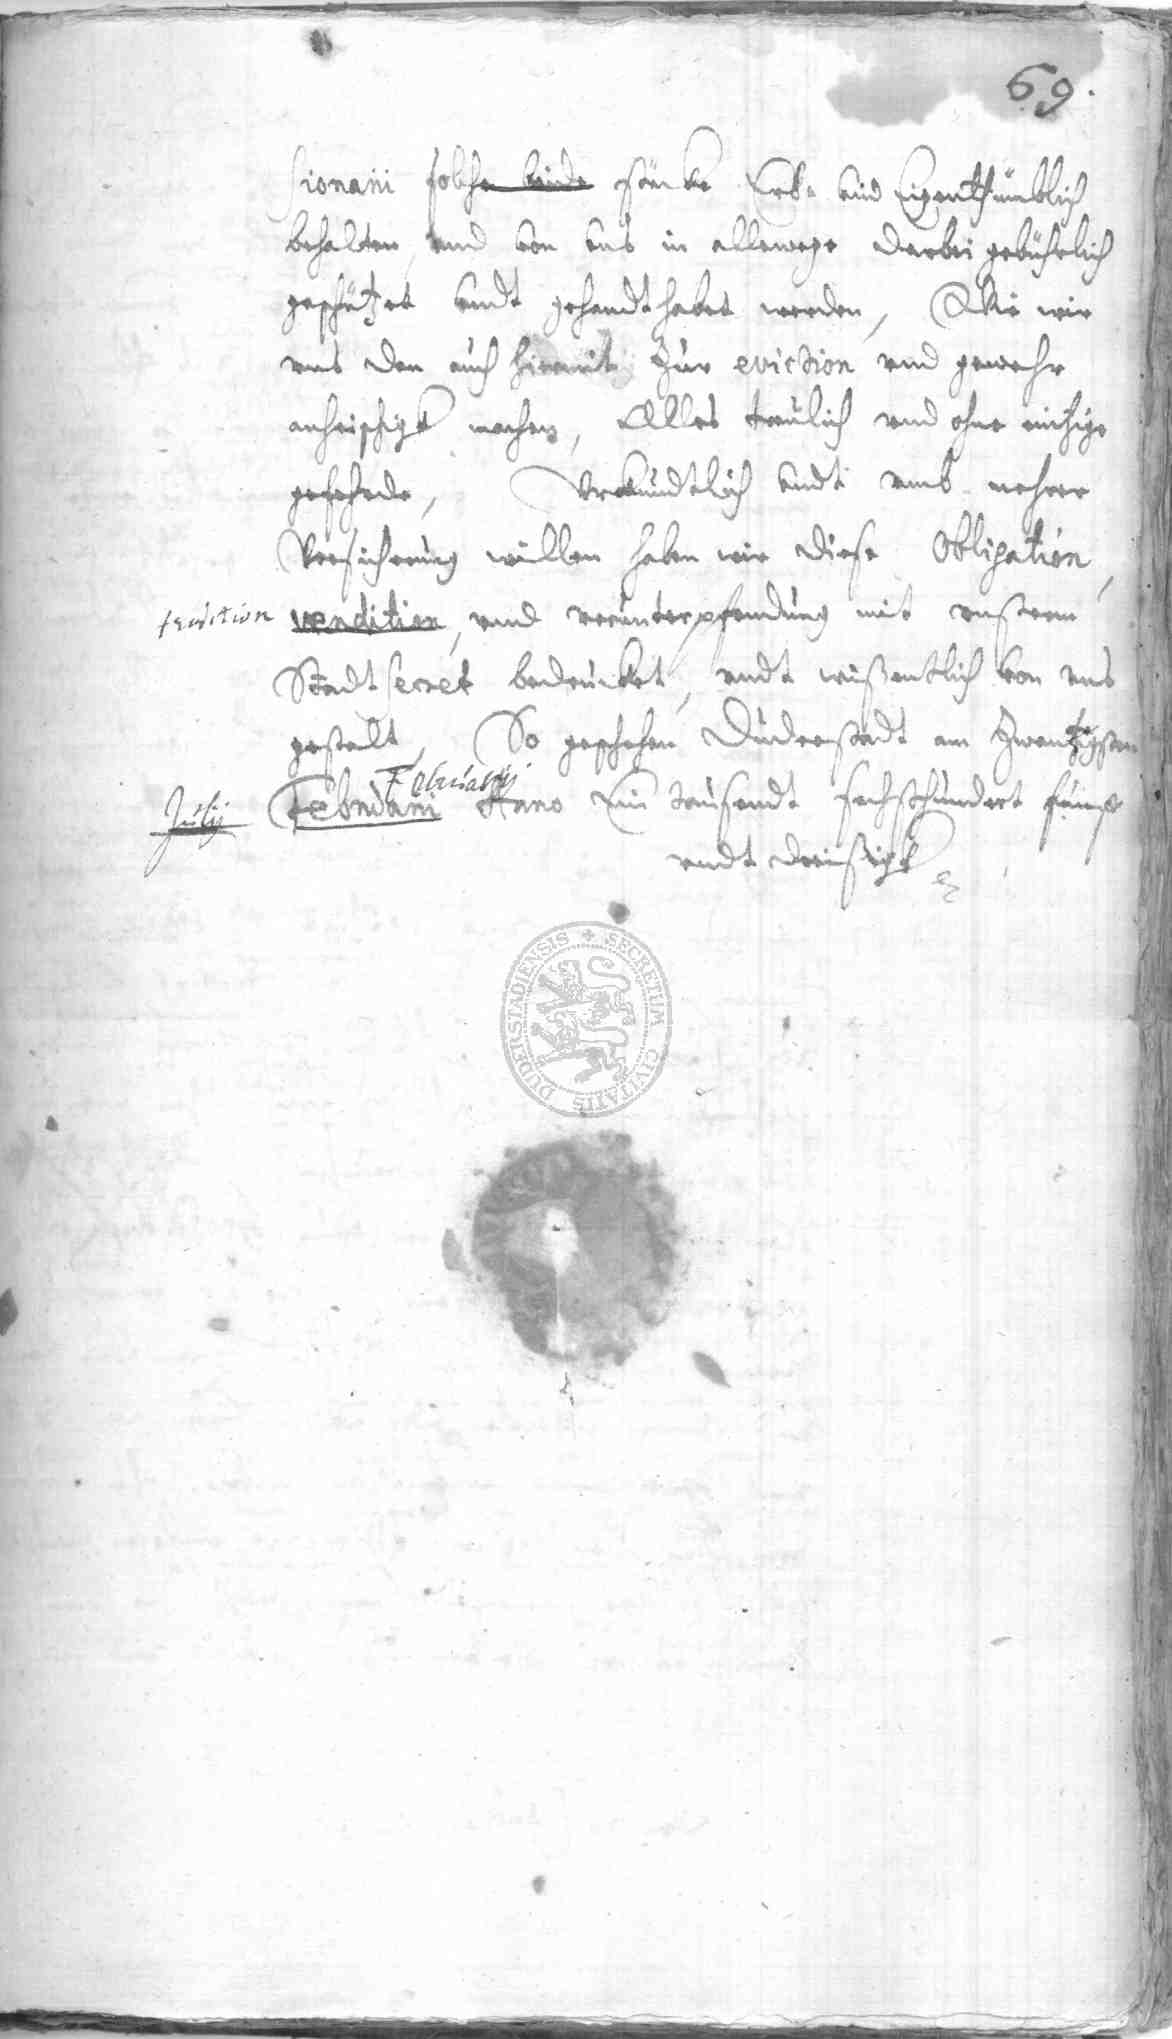 69.
sionarii solche beide stücke Erb- und Eigenthümblich
behalten, und von uns in allewege darbei gebührlich
geschützet undt gehandthabet werden, Wie wir
uns den auch hiermit zur eviction und gewehr
anheischigk machen, Alles treulich und ohne einzige
gefehrde, Urkundtlich undt umb mehrer
Versicherung willen haben wir diese Obligation,
vendition, und verunterpfendung mit unserem
Stadt Secret bedrucket, undt wißentlich von uns
gestalt, So geschehen Duderstadt am Zwanzigsten
Februarij
Julij Februarii Anno Ein tausendt sechshundert fünf
undt dreißigk
SECRETUM CIVITATIS DUDERSTADIENSIS